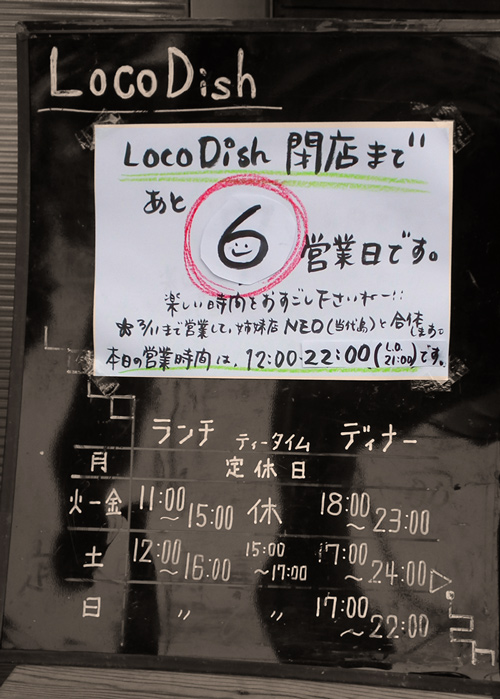 Loco Dish
Loco Dish 閉店まで
あと
6
営業日です。
楽しい時間をおすごし下さいねー!!
★3/11まで営業して、姉妹店NEO(当代島)と合体します
本日の営業時間は、12:00-22:00(L.O. 21:00)です。
ランチ ティータイム ディナー
月 定休日
火-金 11:00～15:00 休 18:00～23:00
土 12:00～16:00 15:00～17:00 17:00～24:00
日 〃 〃 17:00～22:00